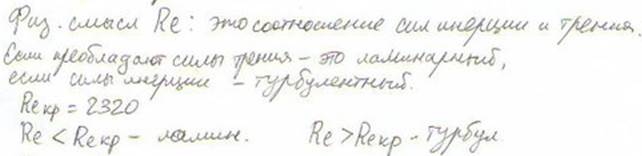 Физ. смысл Re: это соотношение сил инерции и трения.
Если преобладают силы трения – это ламинарный,
если силы инерции – турбулентный.
Reкр = 2320
Re < Reкр – ламин. Re > Reкр – турбул